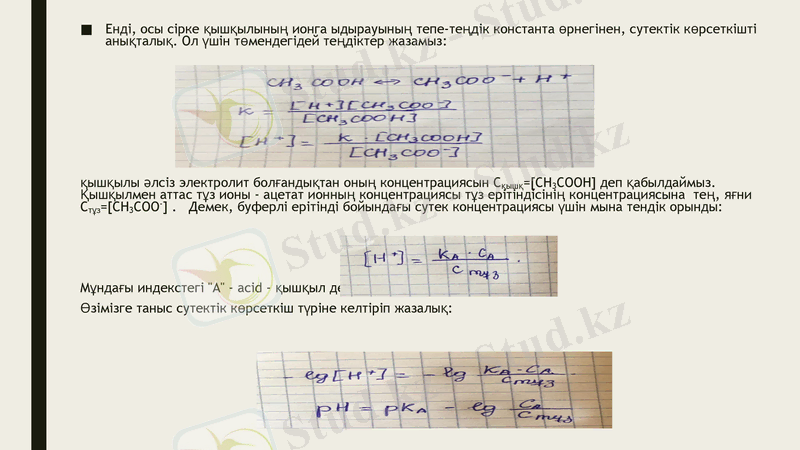 Енді, осы сірке қышқылының ионға ыдырауының тепе-теңдік константа өрнегінен, сутектік көрсеткішті
анықталық. Ол үшін төмендегідей теңдіктер жазамыз:
CH₃COOH ↔ CH₃COO⁻ + H⁺
K = [H⁺][CH₃COO⁻] / [CH₃COOH]
[H⁺] = K · [CH₃COOH] / [CH₃COO⁻]
қышқылы әлсіз электролит болғандықтан оның концентрациясын Сқышқ=[CH₃COOH] деп қабылдаймыз.
Қышқылмен аттас тұз ионы - ацетат ионның концентрациясы тұз ерітіндісінің концентрациясына тең, яғни
Стұз=[CH₃COO⁻] . Демек, буферлі ерітінді бойындағы сутек концентрациясы үшін мына тендік орынды:
[H⁺] = KA · CA / C тұз .
Мұндағы индекстегі "А" - acid - қышқыл де
Өзімізге таныс сутектік көрсеткіш түріне келтіріп жазалық:
- lg[H⁺] = - lg KA · CA / Cтұз .
pH = pKA - lg CA / Cтұз
Stud.kz - Stud.kz
Stud.kz - Stud.kz
Stud.kz - Stud.kz